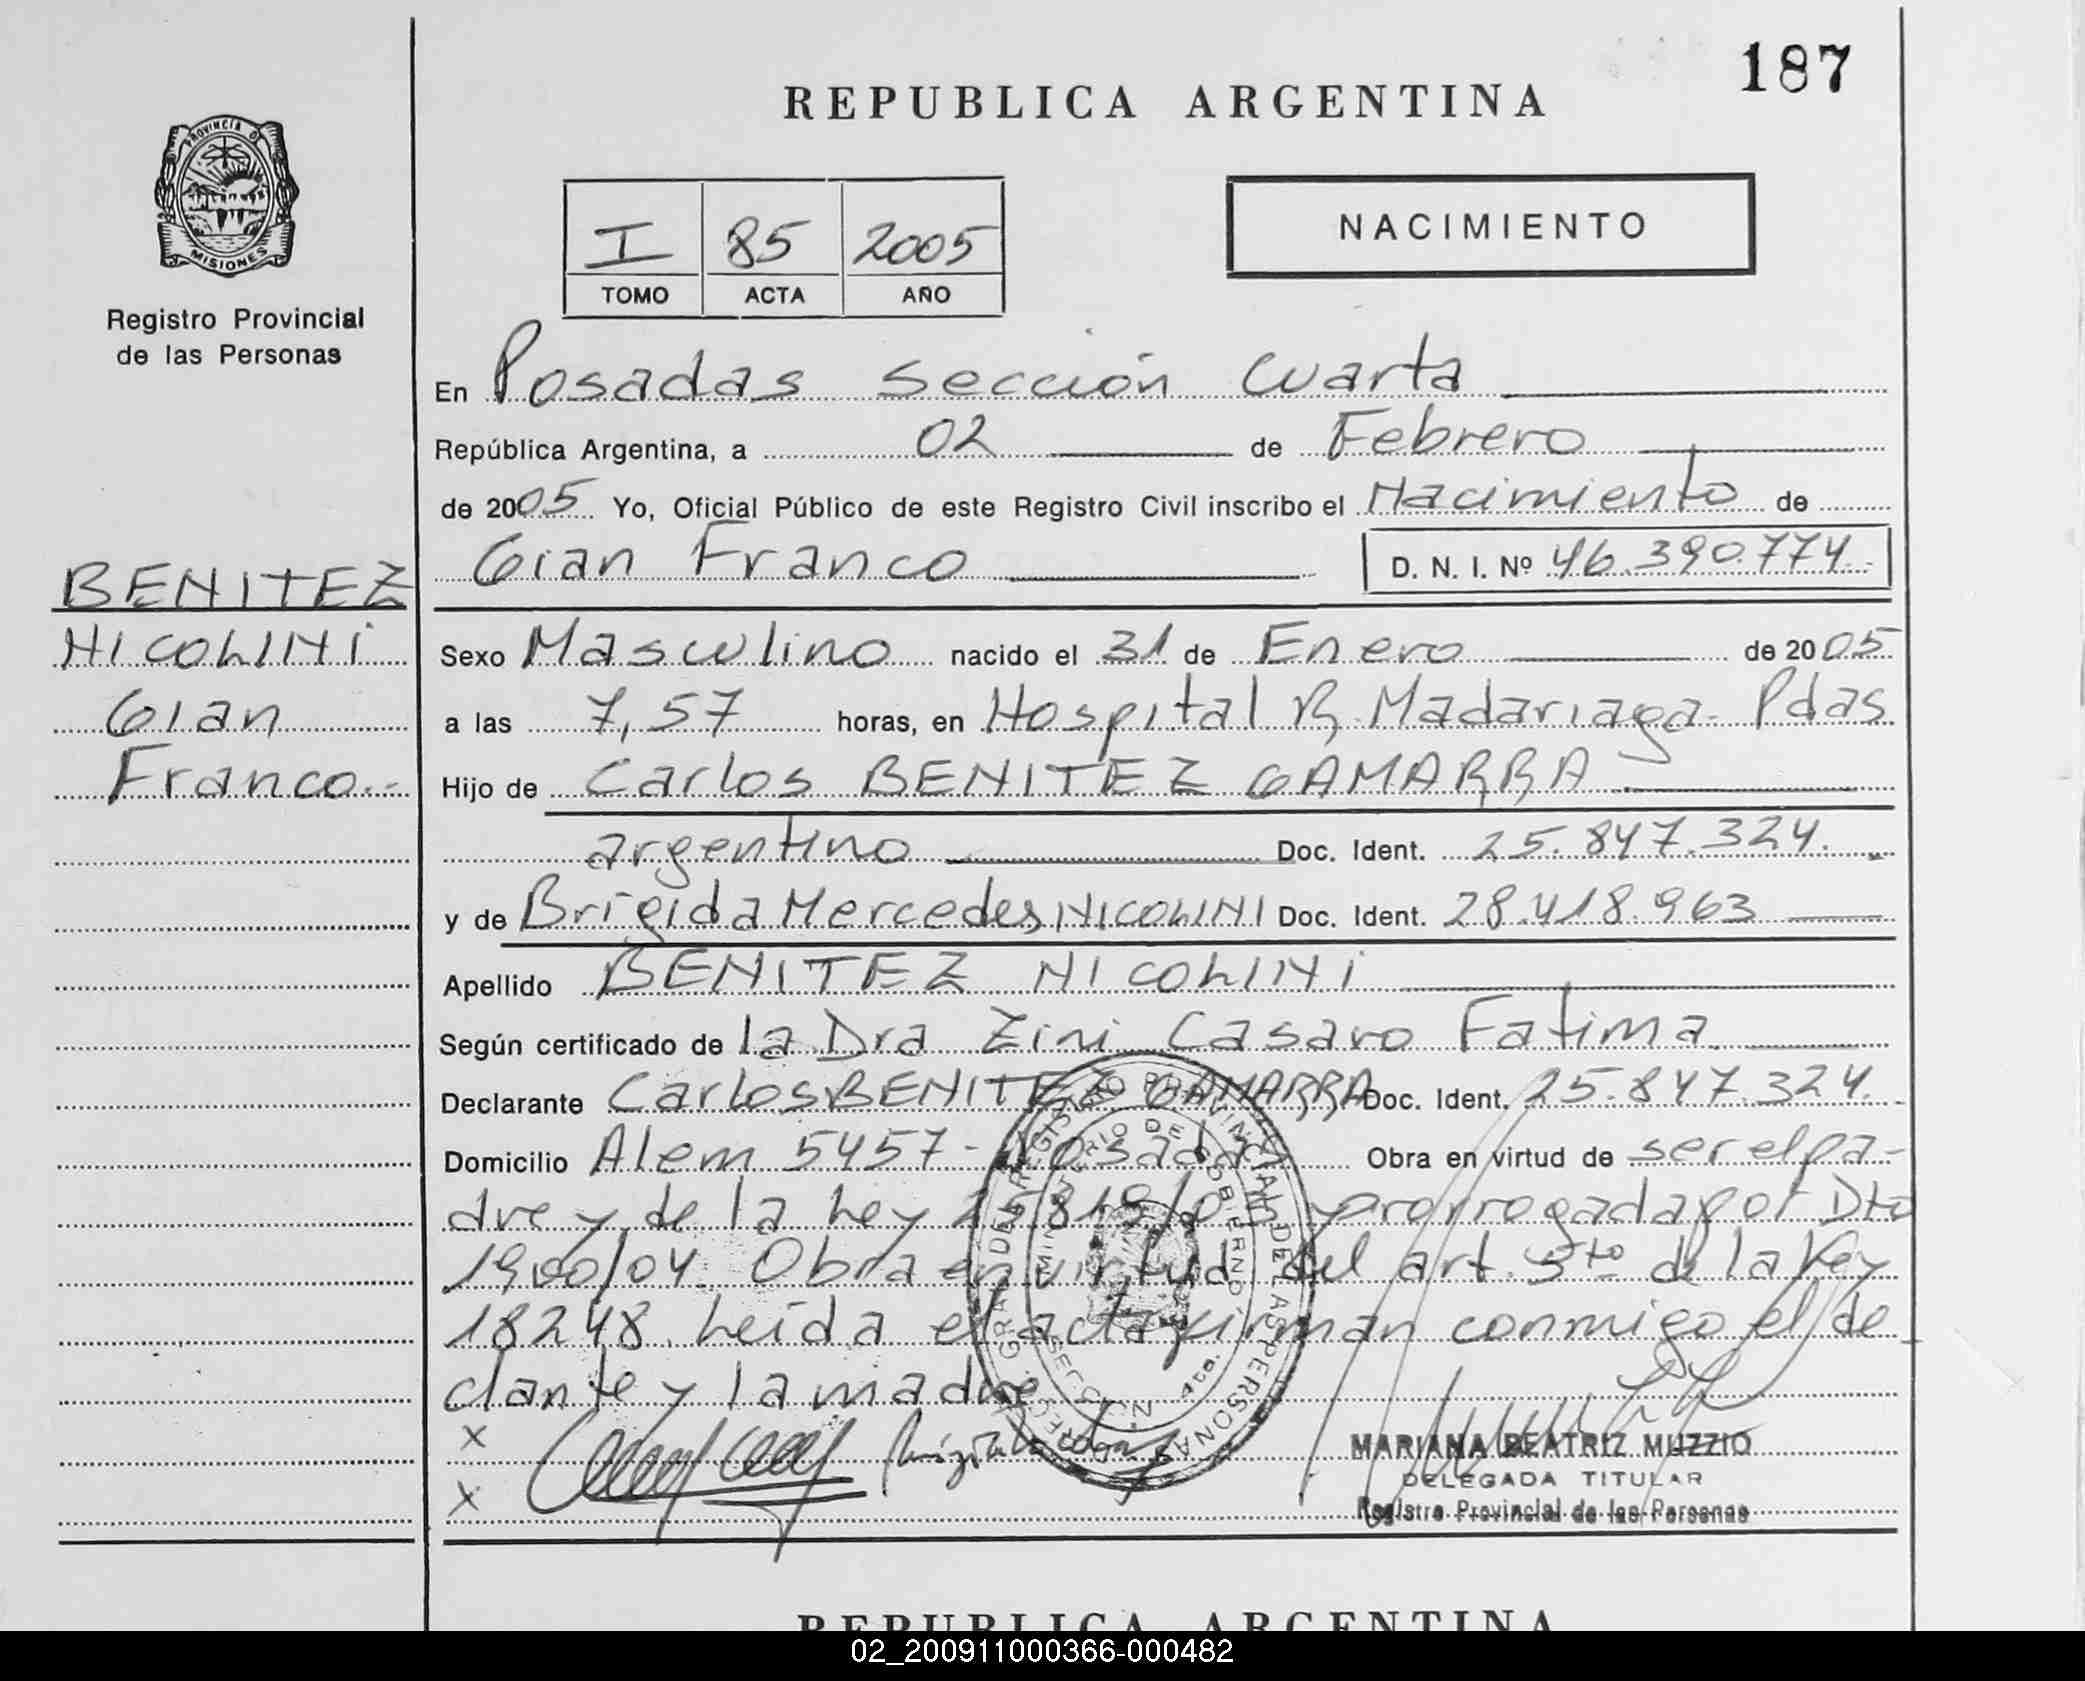 187
REPUBLICA ARGENTINA
PROVINCIA DE
MISIONES
Registro Provincial
de las Personas
I 85 2005
TOMO ACTA AÑO
NACIMIENTO
En Posadas Sección Cuarta
República Argentina, a 02 de Febrero
de 2005 Yo, Oficial Público de este Registro Civil inscribo el Nacimiento de
Gian Franco D. N. I. Nº 46.390.774.-
BENITEZ
NICOLINI
Gian
Franco.-
Sexo Masculino nacido el 31 de Enero de 2005
a las 7,57 horas, en Hospital R. Madariaga- Pdas
Hijo de Carlos BENITEZ GAMARRA
argentino Doc. Ident. 25.847.324.
y de Brigida Mercedes NICOLINI Doc. Ident. 28.418.963
Apellido BENITEZ NICOLINI
Según certificado de la Dra Zini Casaro Fatima
Declarante Carlos BENITEZ GAMARRA Doc. Ident. 25.847.324.
Domicilio Alem 5457- Posadas Obra en virtud de ser el pa-
dre y de la Ley prorrogada por Dto
1900/04. Obra en virtud del art. 5to de la Ley
18248. Leída el acta firman conmigo el de-
clante y la madre
x
x
MARIANA BEATRIZ MUZZIO
DELEGADA TITULAR
Registro Provincial de las Personas
REPUBLICA ARGENTINA
02_200911000366-000482